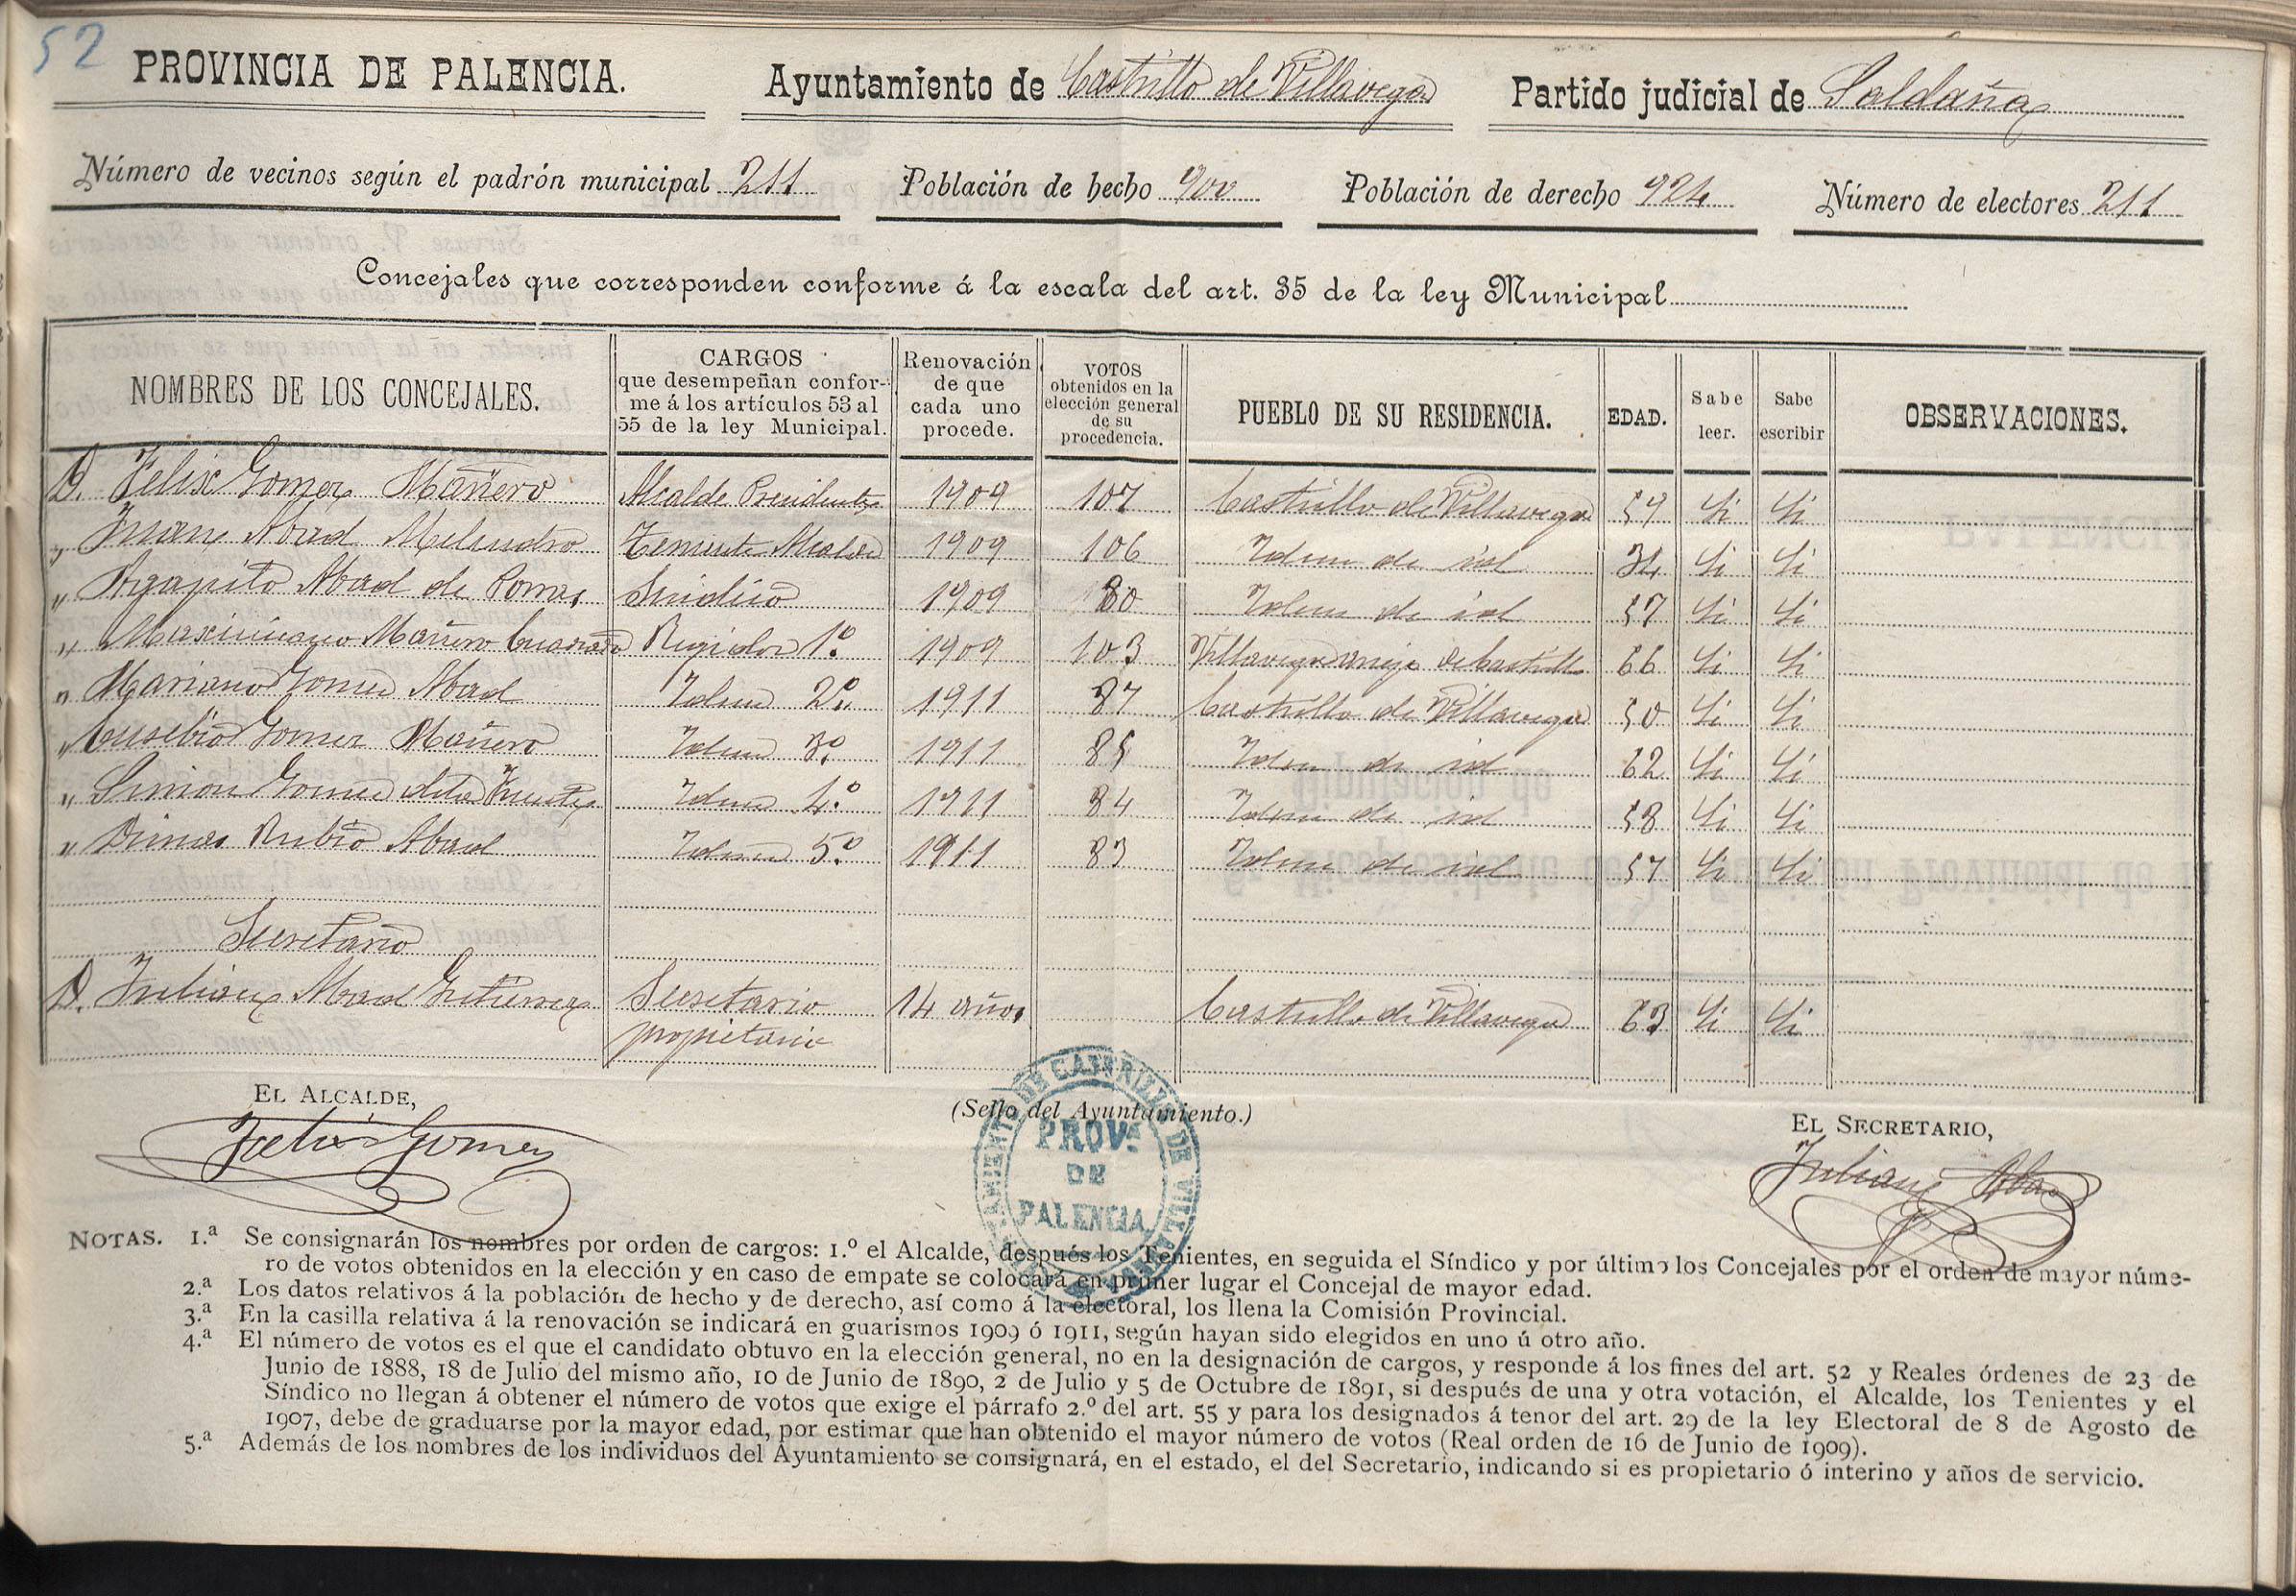 52
PROVINCIA DE PALENCIA. Ayuntamiento de Castrillo de Villavega Partido judicial de Saldaña
Número de vecinos según el padrón municipal 211 Población de hecho 900 Población de derecho 924 Número de electores 211
Concejales que corresponden conforme á la escala del art. 35 de la ley Municipal
NOMBRES DE LOS CONCEJALES.
CARGOS
que desempeñan confor-
me á los artículos 53 al
55 de la ley Municipal.
Renovación
de que
cada uno
procede.
VOTOS
obtenidos en la
elección general
de su
procedencia.
PUEBLO DE SU RESIDENCIA.
EDAD.
Sabe
leer.
Sabe
escribir
OBSERVACIONES.
D. Felix Gomez Mañero Alcalde Presidente 1909 107 Castrillo de Villavega 59 Si Si
" Juan Abad Melendro Teniente Alcalde 1909 106 Idem de id 34 Si Si
" Agapito Abad de Pomes Sindico 1909 80 Idem de id 57 Si Si
" Maximiano Mañero Cuadrado Regidor 1º 1909 103 Villavega anejo de Castrillo 66 Si Si
" Mariano Gomez Abad Idem 2º 1911 87 Castrillo de Villavega 50 Si Si
" Eusebio Gomez Mañero Idem 3º 1911 85 Idem de id 62 Si Si
" Simon Gomez de la Fuente Idem 4º 1911 84 Idem de id 58 Si Si
" Dimas Rubio Abad Idem 5º 1911 83 Idem de id 57 Si Si
Secretario
D. Julian Abad Gutierrez Secretario 14 años Castrillo de Villavega 63 Si Si
propietario
EL ALCALDE,
(Sello del Ayuntamiento.)
EL SECRETARIO,
Felix Gomez
AYUNTAMIENTO DE CASTRILLO DE VILLAVEGA
PROVª
DE
PALENCIA
Julian Abad
NOTAS. 1.ª Se consignarán los nombres por orden de cargos: 1.º el Alcalde, después los Tenientes, en seguida el Síndico y por último los Concejales por el orden de mayor núme-
ro de votos obtenidos en la elección y en caso de empate se colocará en primer lugar el Concejal de mayor edad.
2.ª Los datos relativos á la población de hecho y de derecho, así como á la electoral, los llena la Comisión Provincial.
3.ª En la casilla relativa á la renovación se indicará en guarismos 1909 ó 1911, según hayan sido elegidos en uno ú otro año.
4.ª El número de votos es el que el candidato obtuvo en la elección general, no en la designación de cargos, y responde á los fines del art. 52 y Reales órdenes de 23 de
Junio de 1888, 18 de Julio del mismo año, 10 de Junio de 1890, 2 de Julio y 5 de Octubre de 1891, si después de una y otra votación, el Alcalde, los Tenientes y el
Síndico no llegan á obtener el número de votos que exige el párrafo 2.º del art. 55 y para los designados á tenor del art. 29 de la ley Electoral de 8 de Agosto de
1907, debe de graduarse por la mayor edad, por estimar que han obtenido el mayor número de votos (Real orden de 16 de Junio de 1909).
5.ª Además de los nombres de los individuos del Ayuntamiento se consignará, en el estado, el del Secretario, indicando si es propietario ó interino y años de servicio.